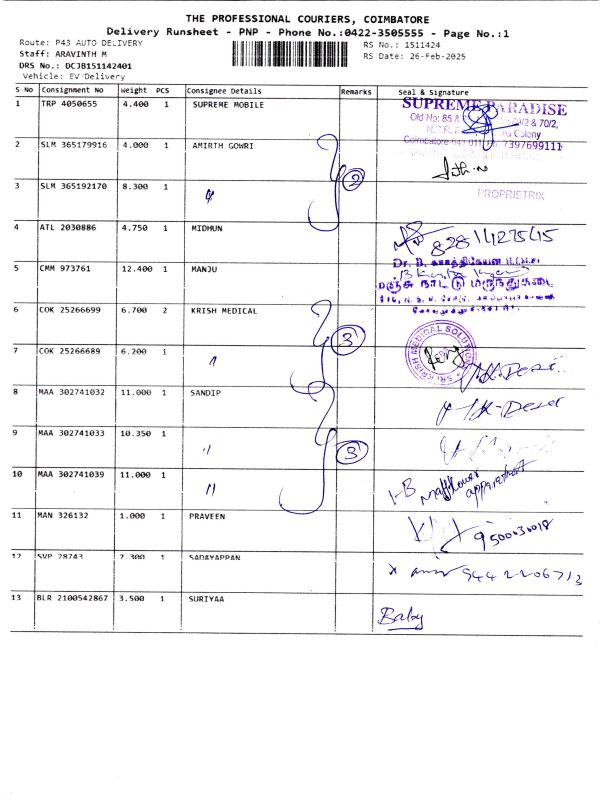 THE PROFESSIONAL COURIERS, COIMBATORE
Delivery Runsheet - PNP - Phone No.:0422-3505555 - Page No.:1
Route: P43 AUTO DELIVERY RS No.: 1511424
Staff: ARAVINTH M RS Date: 26-Feb-2025
DRS No.: DCJB151142401
Vehicle: EV Delivery
S No Consignment No Weight PCS Consignee Details Remarks Seal & Signature
1 TRP 4050655 4.400 1 SUPREME MOBILE
SUPREME PARADISE
Old No: 85 & 70/2,
Colony
Coimbatore 7397699111
2 SLM 365179916 4.000 1 AMIRTH GOWRI
2
3 SLM 365192170 8.300 1 "
PROPRIETRIX
4 ATL 2030886 4.750 1 MIDHUN
5 CMM 973761 12.400 1 MANJU
Dr. B.
6 COK 25266699 6.700 2 KRISH MEDICAL
3
SRI KRISH MEDICAL SOLUTION
7 COK 25266689 6.200 1 "
8 MAA 302741032 11.000 1 SANDIP
9 MAA 302741033 10.350 1 "
3
10 MAA 302741039 11.000 1 "
1-B Mayflower appartment
11 MAN 326132 1.000 1 PRAVEEN
9500030018
12 SVP 28743 2.300 1 SADAYAPPAN
9442206713
13 BLR 2100542867 3.500 1 SURIYAA
Baby